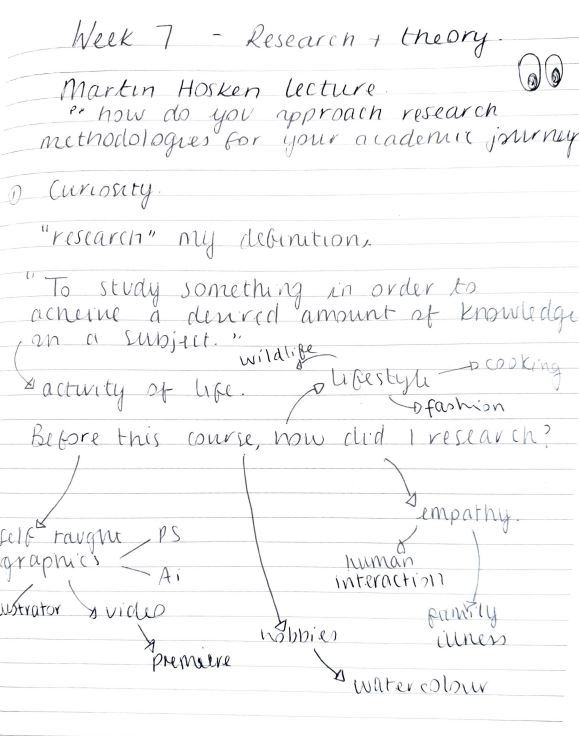 Week 7 - Research + theory.
Martin Hosken lecture.
how do you approach research
methodologies for your academic journey
① Curiosity.
"research" my definition,
"To study something in order to
achieve a desired amount of knowledge
in a subject."
activity of life.
wildlife
lifestyle
cooking
fashion
Before this course, how did I research?
self taught
graphics
PS
Ai
ustrator
video
premiere
hobbies
watercolour
empathy.
human
interaction
family
illness